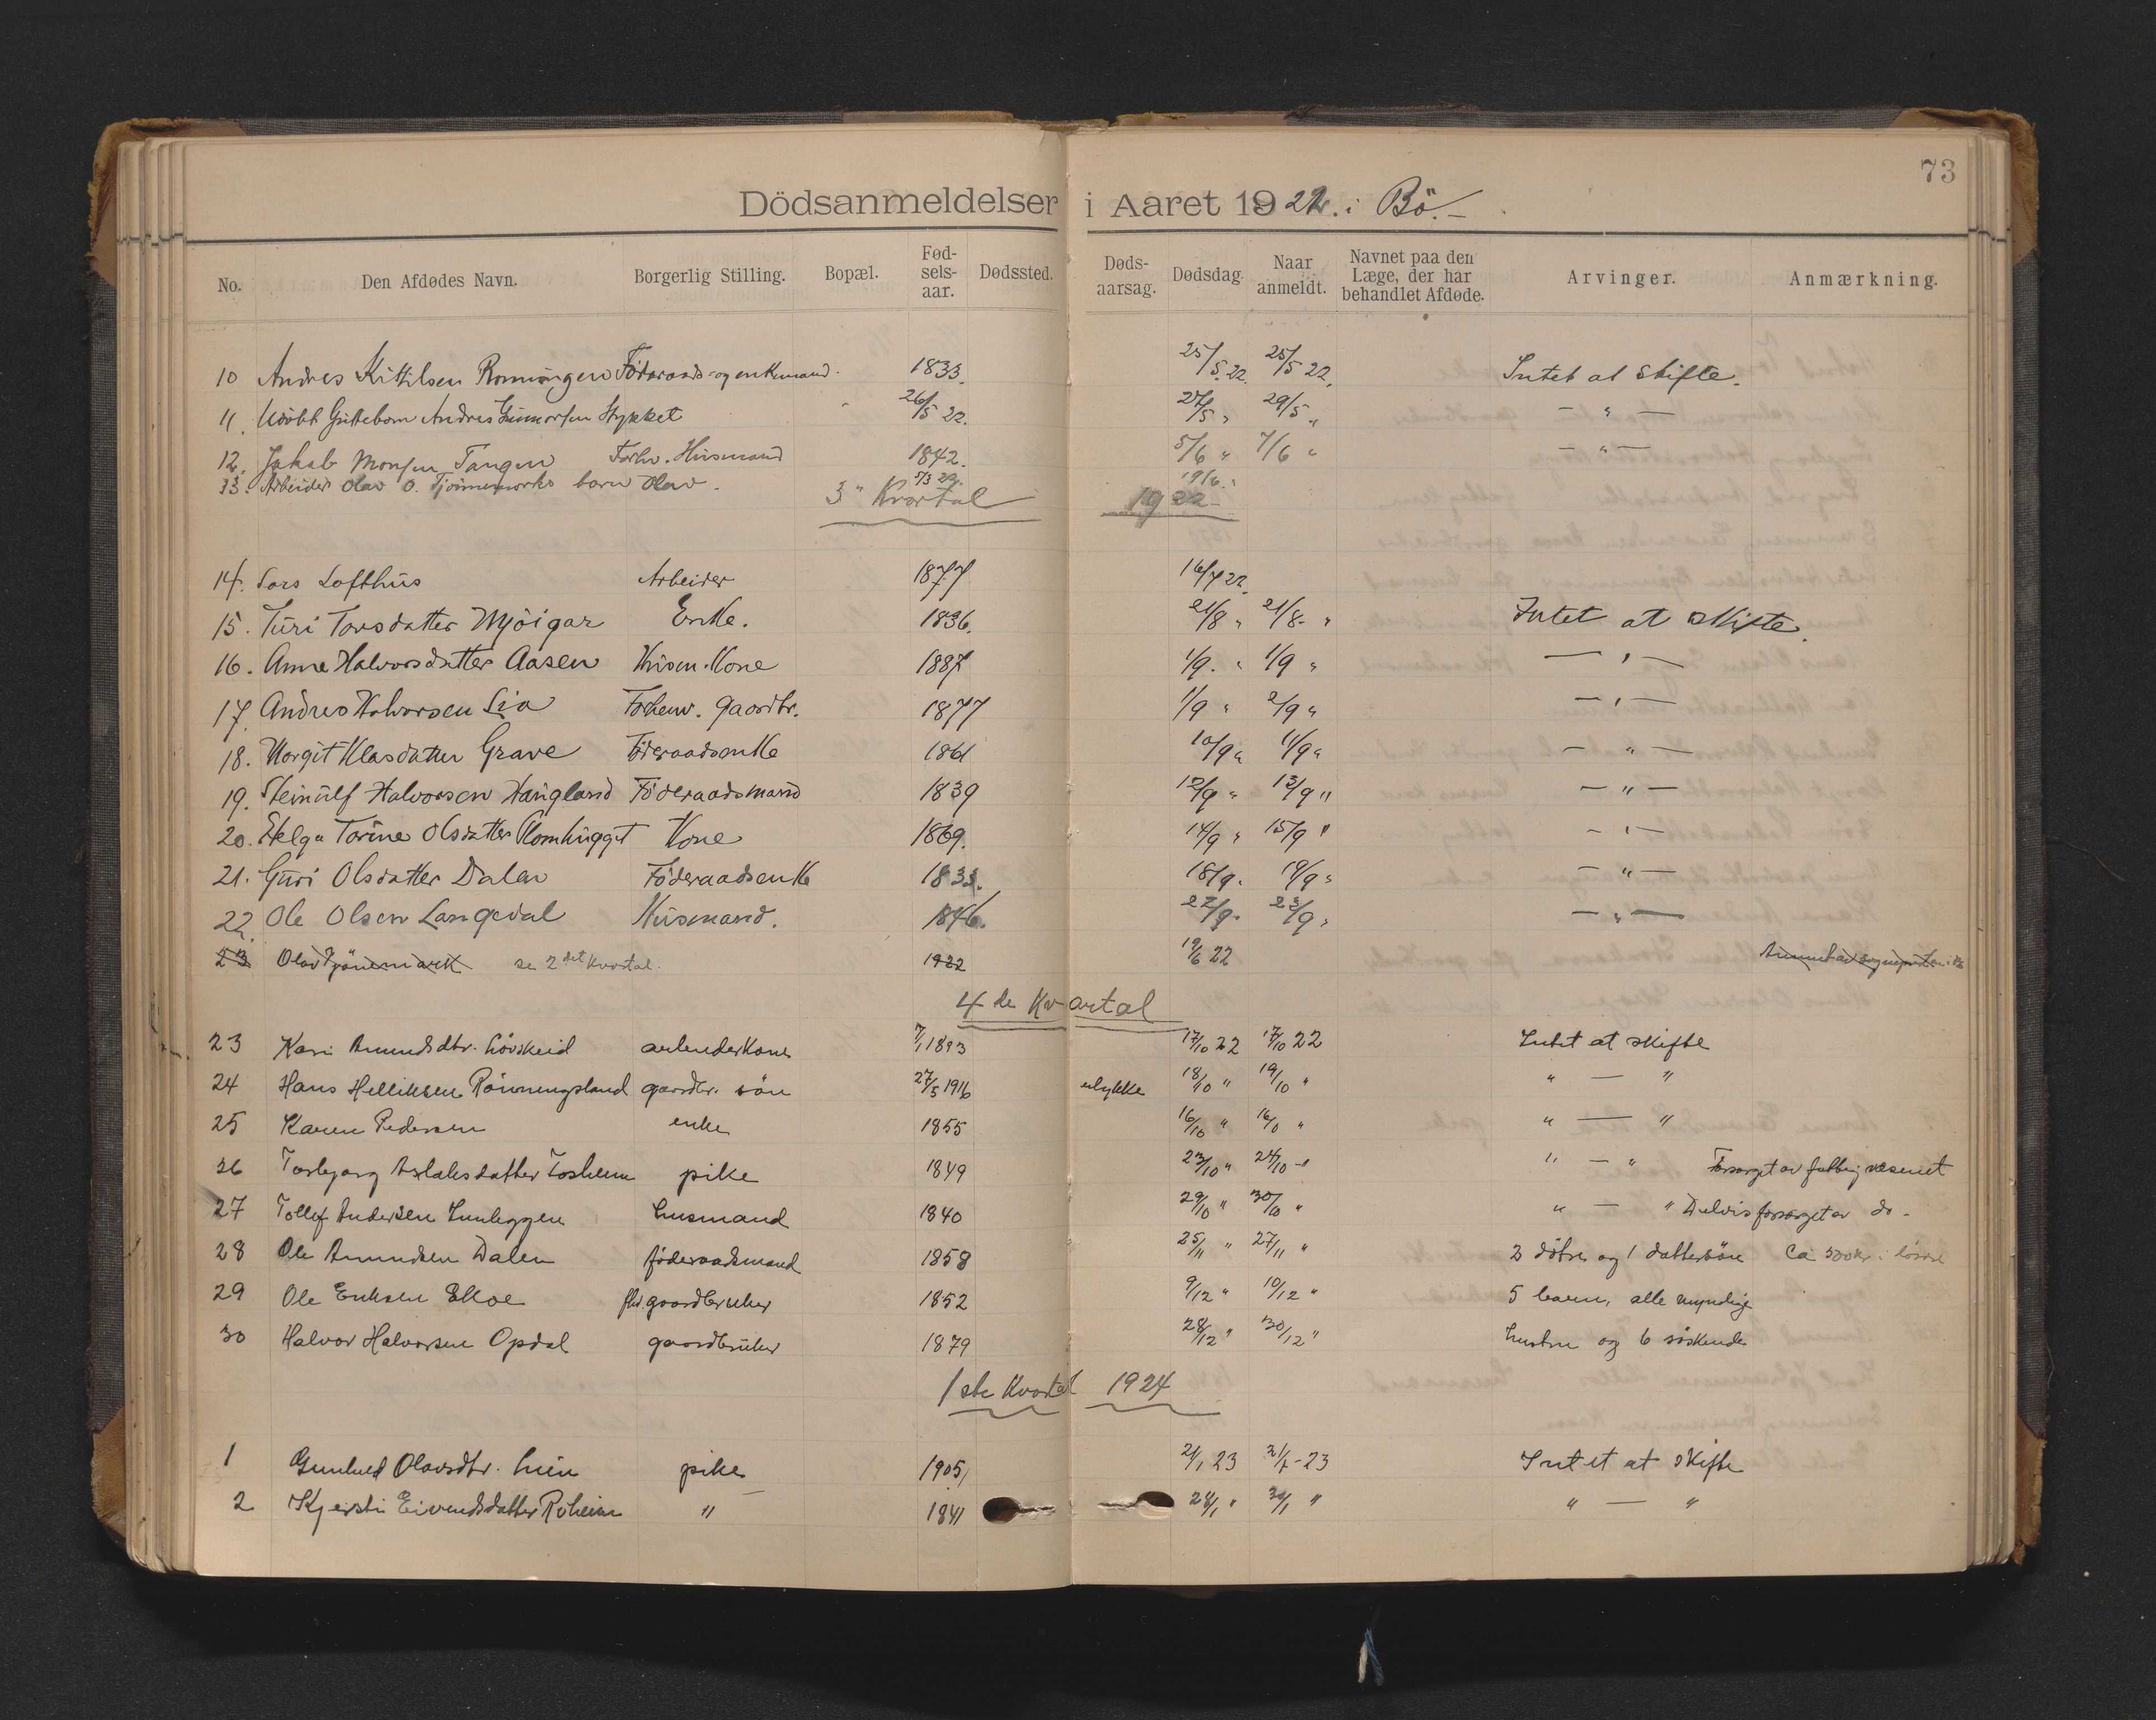 73
Dödsanmeldelser i Aaret 1922. i Bö.-
No. Den Afdødes Navn. Borgerlig Stilling. Bopæl. Fød-sels-aar. Dødssted. Døds-aarsag. Dødsdag. Naar anmeldt. Navnet paa den Læge, der har behandlet Afdøde. Arvinger. Anmærkning.
10 Andres Kittilsen Rønningen Föderaads- og enkemand. 1833. 25/5. 22. 25/5 22. Intet at skifte.
11. Udöbt Guttebarn Andres Gunnarsen Stykket 26/5 22. 27/5 " 29/5 " - " -
12. Jakob Monsen Tangen Forhv. Husmand 1842. 5/6 " 7/6 " - " -
13. Arbeider Olav O. Tjönnemorks barn Olav. 5/3 22. 19/6. "
3" Kvartal 1922
14. Lars Lofthus Arbeider 1877 16/7 22.
15. Turi Torsdatter Mjöigar Enke. 1836. 21/8 " 21/8- " Intet at skifte.
16. Anne Halvorsdatter Aasen Husm. Kone 1887 1/9. " 1/9 " - " -
17. Andres Halvorsen Lia Forhenv. gaardbr. 1877 1/9 " 2/9 " - " -
18. Margit Klasdatter Grave Föderaadsenke 1861 10/9 " 11/9 " - " -
19. Steinulf Halvorsen Haugland Föderaadsmand 1839 12/9 " 13/9 " - " -
20. Helga Torine Olsdatter Plomhugget Kone 1869. 14/9 " 15/9 " - " -
21. Guri Olsdatter Dalen Föderaadsenke 1833. 18/9. 19/9 " - " -
22. Ole Olsen Langedal Husmand. 1846. 22/9. 23/9 " - " -
23 Olav Tjönnemark se 2det Kvartal. 1922 19/6 22
4de Kvartal
23 Kari Amundsdtr. Lövskeid arbeiderkone 7/1 1893 17/10 22 17/10 22 Intet at skifte
24 Hans Helliksen Rönningsland gaardbr. sön 27/5 1916 ulykke 18/10 " 19/10 " " - "
25 Karen Pedersen enke 1855 16/10 " 16/10 " " - "
26 Torbjørg Aslaksdatter Forsheim pike 1849 23/10 " 24/10 -" " - " Forsørget av fattigvæsenet
27 Tollef Andersen Lunleggen husmand 1840 29/10 " 30/10 " " - " Delvis forsørget av do-
28 Ole Amundsen Dalen föderaadsmand 1858 25/11 " 27/11 " 2 døtre og 1 dattersön Ca 500 kr. i løsøre
29 Ole Eriksen Ekoe fhv. gaardbruker 1852 9/12 " 10/12 " 5 barn, alle myndige
30 Halvor Halvorsen Opdal gaardbruker 1879 28/12 " 30/12 " hustru og 6 söskende
1ste Kvartal 1924
1 Gunhild Olavsdtr. Lien pike 1905, 21/1 23 21/1-23 Intet at skifte
2 Kjersti Eivindsdatter Roheim " 1841 28/1 " 30/1 " " - "